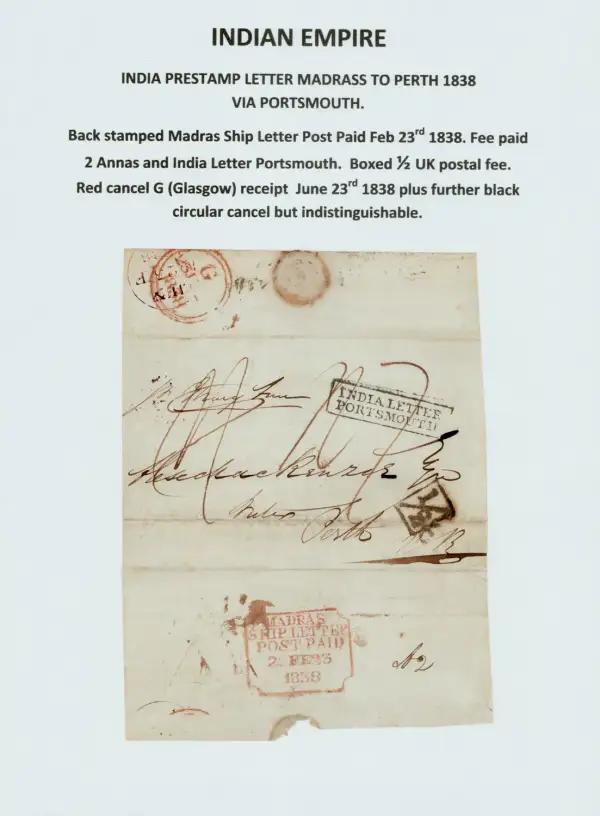 INDIAN EMPIRE
INDIA PRESTAMP LETTER MADRASS TO PERTH 1838
VIA PORTSMOUTH.
Back stamped Madras Ship Letter Post Paid Feb 23rd 1838. Fee paid
2 Annas and India Letter Portsmouth. Boxed ½ UK postal fee.
Red cancel G (Glasgow) receipt June 23rd 1838 plus further black
circular cancel but indistinguishable.
G
INDIA LETTER
PORTSMOUTH
Mackenzie Esq
½
Perth N B
MADRAS
SHIP LETTER
POST PAID
2 FE 23
1838